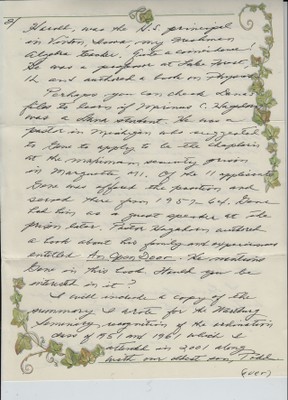 2/
Herolt, was the H.S. principal
in Vinton, Iowa, my freshman
algebra teacher. Quite a coincidence!
He was a professor at Lake Forest,
Ill and authored a book on Physics.
Perhaps you can check Dana
files to learn if Marinus C. Hagstrom
was a Dana student. He was a
pastor in Michigan who suggested
to Gene to apply to be the chaplain
at the maximum security prison
in Marquette, MI. Of the 11 applicants
Gene was offered the position and
served there from 1957-64. Gene
had him as a guest speaker at the
prison later. Pastor authored
a book about his family and experiences
entitled An Open Door. He mentions
Gene in this book. Would you be
interested in it?
I will include a copy of the
summary I wrote for the Wartburg
Seminary recognition of the ordination
class of 1951 and 1961 which I
attended in 2001 along
with our oldest son, Todd.
(over)